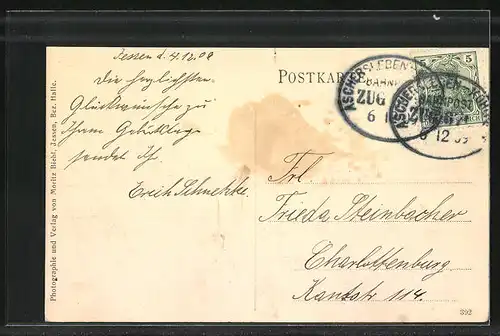 Jessen d. 4.12.09
Die herzlichsten
Glückwünsche zu
Ihrem Geburtstag
sendet Ihr
Erich Schnetzke
Photographie und Verlag von Moritz Biehl, Jessen, Bez. Halle.
POSTKARTE
ASCHERSLEBEN-
BAHNPOST
ZUG
6 12
5
ASCHERSLEBEN-
BAHNPOST
ZUG
6 12 09
Frl.
Frieda Steinbacher
Charlottenburg
Kantstr 114.
392